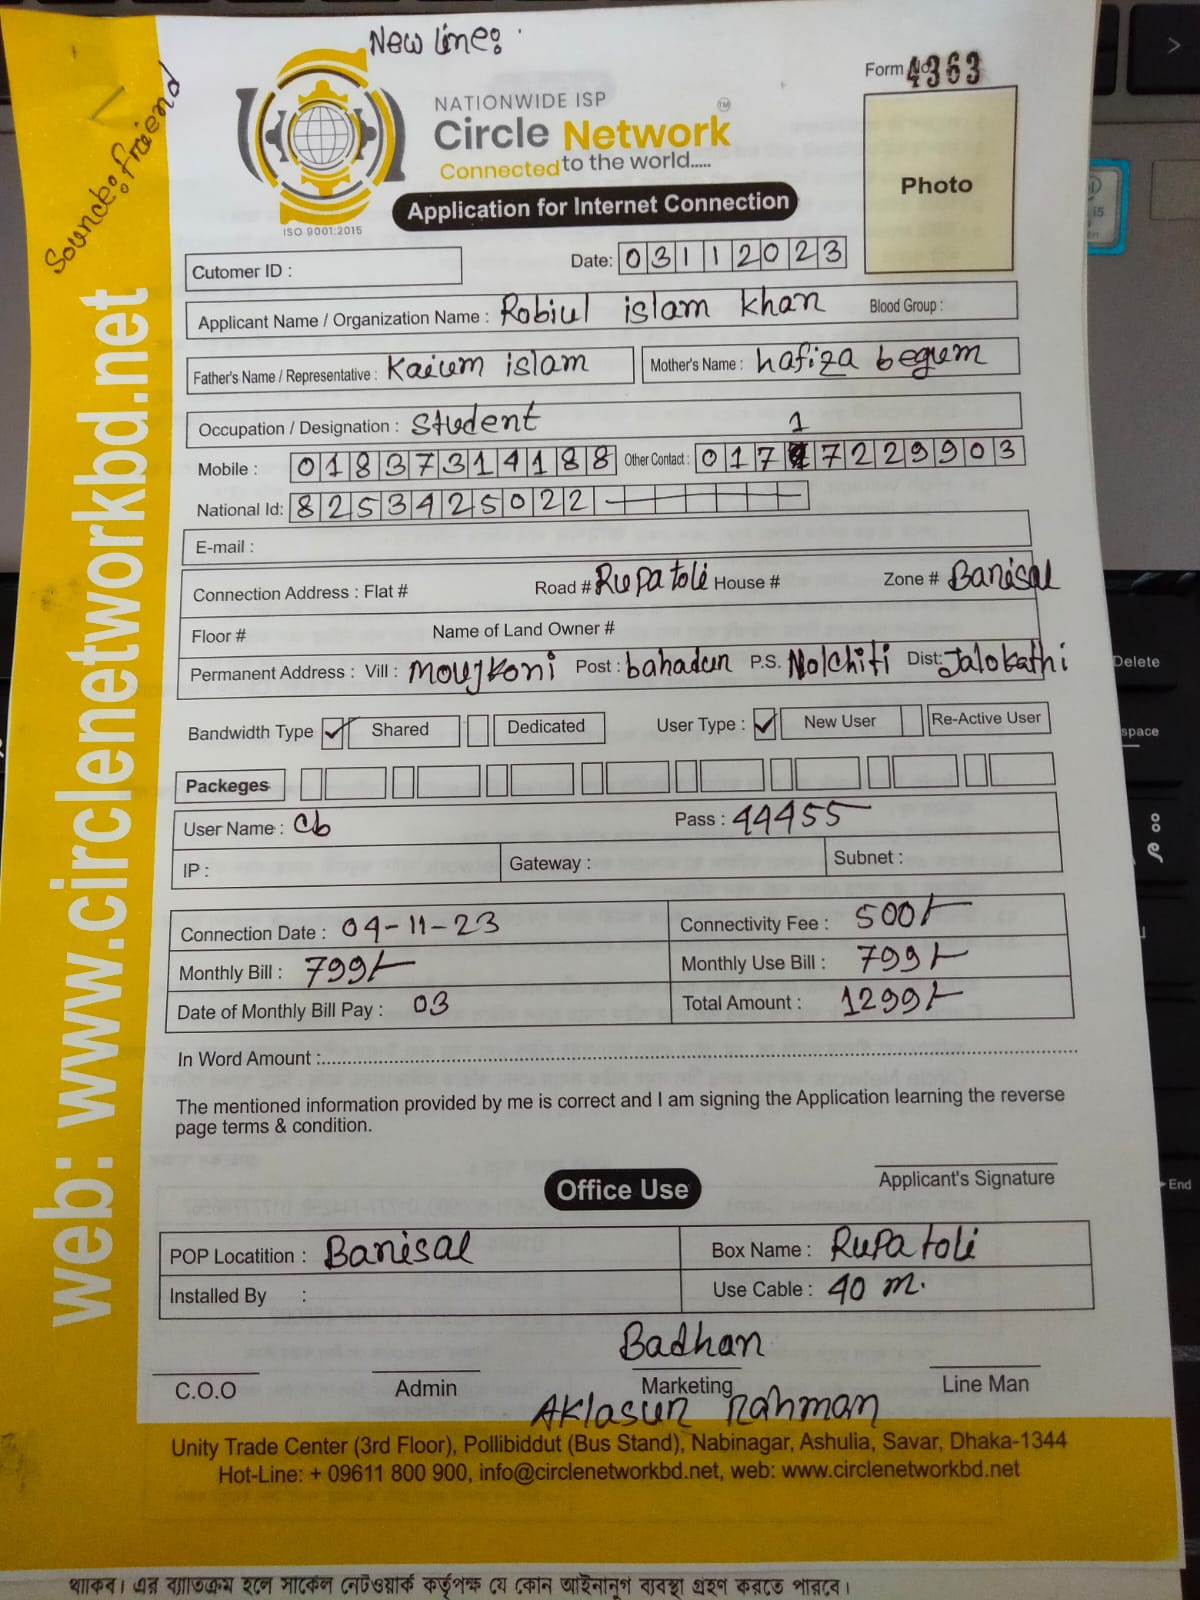 New line:
Source: friend
Form No 4363
NATIONWIDE ISP
Circle Network TM
Connected to the world.....
ISO 9001:2015
Application for Internet Connection
Photo
Cutomer ID :
Date: 03112023
Applicant Name / Organization Name : Robiul islam khan Blood Group :
Father's Name / Representative : Kaium islam Mother's Name : hafiza begum
Occupation / Designation : Student
Mobile : 01837314188 Other Contact : 01717229903
National Id: 8253425022
E-mail :
Connection Address : Flat # Road # Rupatoli House # Zone # Barisal
Floor # Name of Land Owner #
Permanent Address : Vill : moujkoni Post : bahadur P.S. Nolchiti Dist: Jalokathi
Bandwidth Type ✓ Shared Dedicated User Type : ✓ New User Re-Active User
Packeges
User Name : cb Pass : 44455
IP : Gateway : Subnet :
Connection Date : 04-11-23 Connectivity Fee : 500/-
Monthly Bill : 799/- Monthly Use Bill : 799/-
Date of Monthly Bill Pay : 03 Total Amount : 1299/-
In Word Amount :
The mentioned information provided by me is correct and I am signing the Application learning the reverse
page terms & condition.
Applicant's Signature
Office Use
POP Locatition : Barisal Box Name : Rupatoli
Installed By : Use Cable : 40 m.
Badhan
C.O.O Admin Marketing Line Man
Aklasur Rahman
Unity Trade Center (3rd Floor), Pollibiddut (Bus Stand), Nabinagar, Ashulia, Savar, Dhaka-1344
Hot-Line: + 09611 800 900, info@circlenetworkbd.net, web: www.circlenetworkbd.net
web: www.circlenetworkbd.net
থাকিব। এর ব্যাতিক্রম হলে সার্কেল নেটওয়ার্ক কর্তৃপক্ষ যে কোন আইনানুগ ব্যবস্থা গ্রহণ করতে পারবে।
Delete
space
End
i5